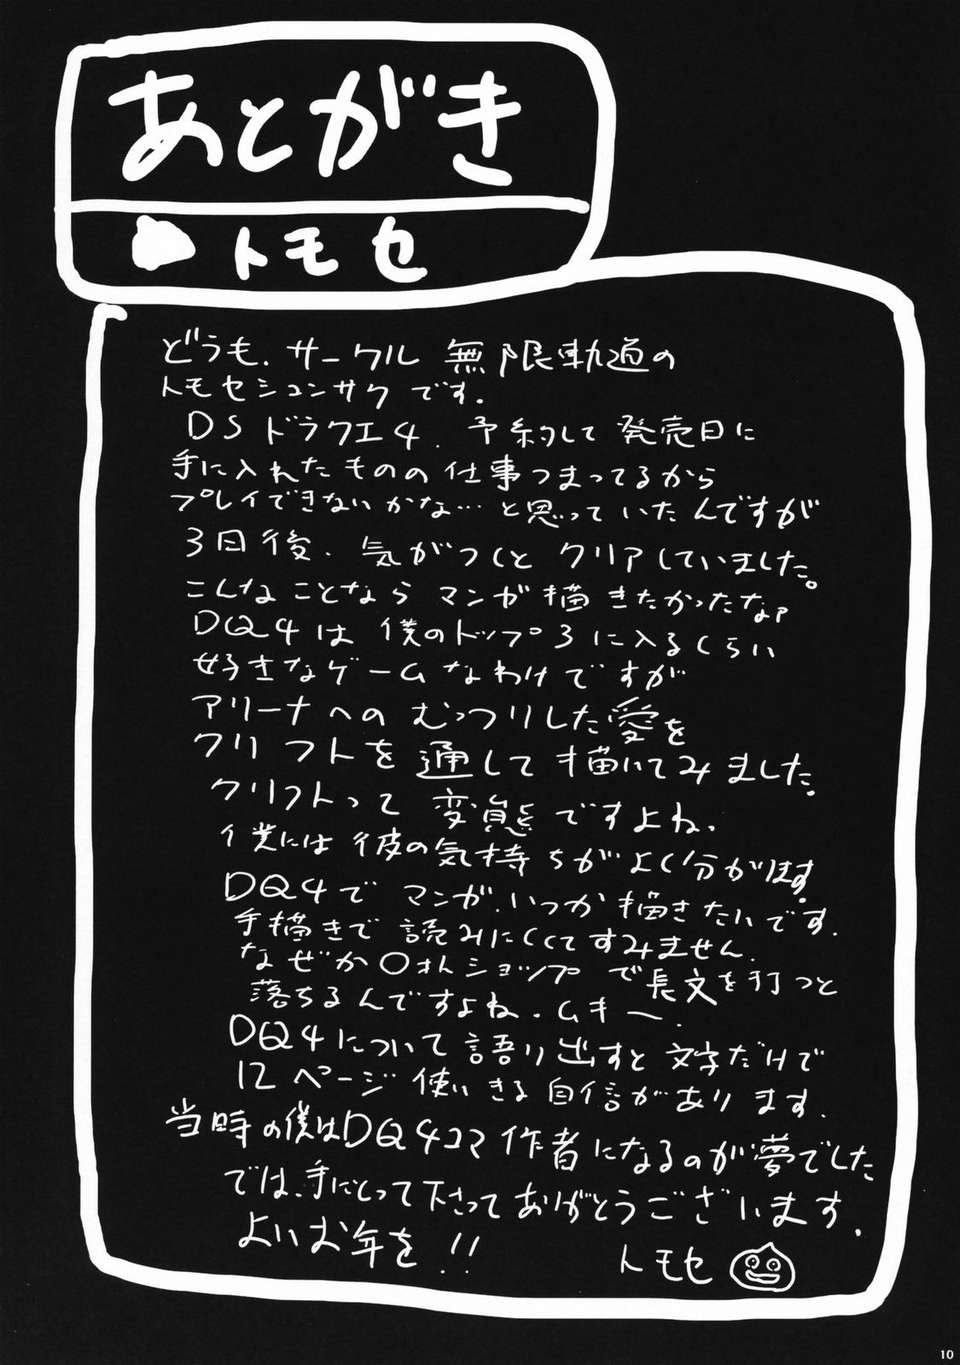 あとがき
トモセ
どうも、サークル 無限軌道の
トモセシュンサクです。
DSドラクエ4、予約して発売日に
手に入れたものの仕事つまってるから
プレイできないかな…と思っていたんですが
3日後、気がつくとクリアしていました。
こんなことならマンガ描きたかったなァ
DQ4は僕のトップ3に入るくらい
好きなゲームなわけですが
アリーナへのむっつりした愛を
クリフトを通して描いてみました。
クリフトって変態ですよね、
僕には彼の気持ちがよく分かります。
DQ4でマンガ、いつか描きたいです。
手描きで読みにくくてすみません、
なぜか○ォトショップで長文を打つと
落ちるんですよね・ムキー、
DQ4について語り出すと文字だけで
12ページ使いきる自信があります、
当時の僕はDQ4コマ作者になるのが夢でした
では、手にとって下さってありがとうございます、
よいお年を!!
トモセ
10